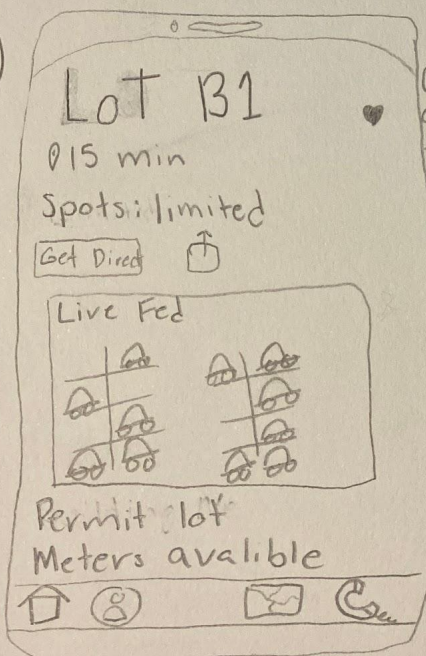 LoT B1
15 min
Spots: limited
Get Direct
Live Fed
Permit lot
Meters avalible